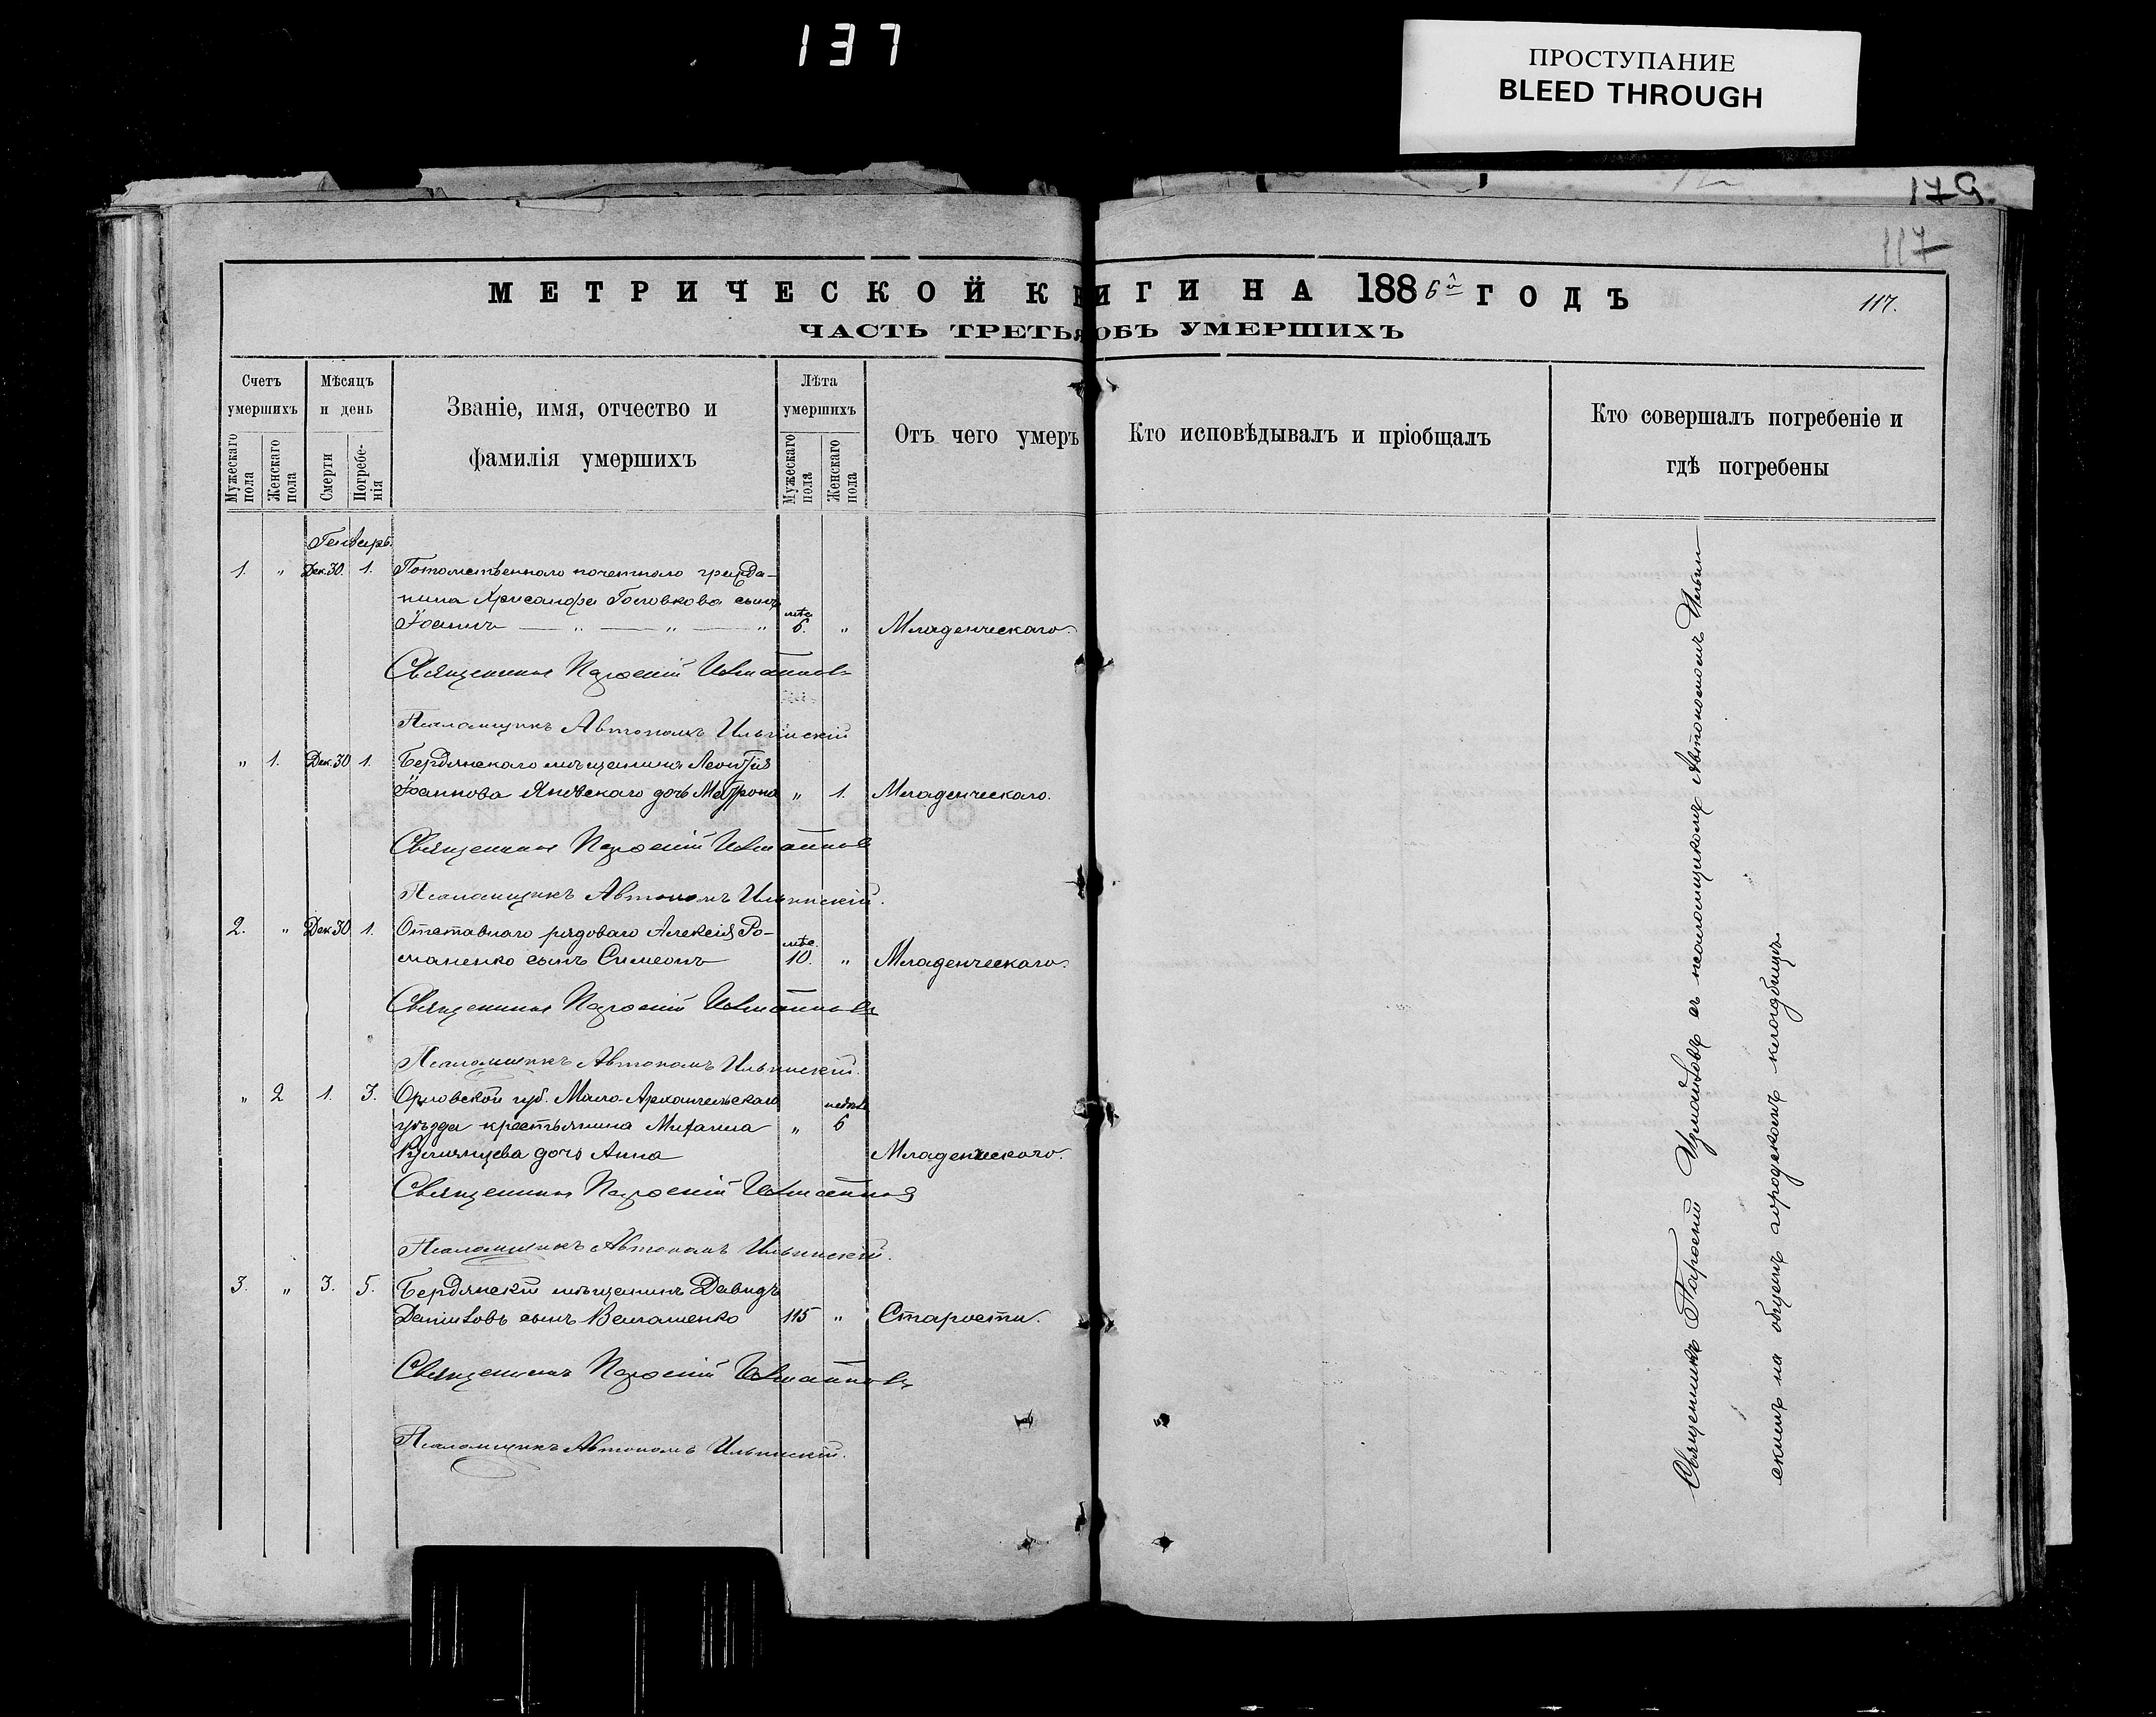 137
ПРОСТУПАНИЕ
BLEED THROUGH
179.
117
МЕТРИЧЕСКОЙ КНИГИ НА 1886й ГОДЪ
117.
ЧАСТЬ ТРЕТЬЯ ОБЪ УМЕРШИХЪ
Счетъ умершихъ
Мужескаго пола
Женскаго пола
Мѣсяцъ и день
Смерти
Погребенія
Званіе, имя, отчество и
фамилія умершихъ
Лѣта умершихъ
Мужескаго пола
Женскаго пола
Отъ чего умеръ
Кто исповѣдывалъ и пріобщалъ
Кто совершалъ погребеніе и
гдѣ погребены
Генварь.
1. " Дек. 30. 1. Потомственнаго почетнаго гражда-
нина Хрисанфа Головкова сынъ
Іоаннъ — " — " — " мѣс. 6. " Младенческаго.
Священникъ
Псаломщикъ Автономъ Ильинскій
" 1. Дек. 30 1. Бердянскаго мѣщанина Леонтія
Іоаннова Яневскаго дочь Матрона " 1. Младенческаго.
Священникъ
Псаломщикъ Автономъ Ильинскій.
2. " Дек 30 1. Отставнаго рядоваго Алексія Ро-
маненко сынъ Симеонъ мѣс. 10. " Младенческаго.
Священникъ
Псаломщикъ Автономъ Ильинскій.
" 2 1. 3. Орловской губ. Мало-Архангельскаго
уѣзда крестьянина Михаила " 6
дочь Анна Младенческаго.
Священникъ
Псаломщикъ Автономъ Ильинскій.
3. " 3. 5. Бердянскій мѣщанинъ Давидъ
сынъ 115 " Старости.
Священникъ
Псаломщикъ Автономъ Ильинскій.
Священникъ съ псаломщикомъ Автономомъ Ильин-
скимъ на общемъ городскомъ кладбищѣ.